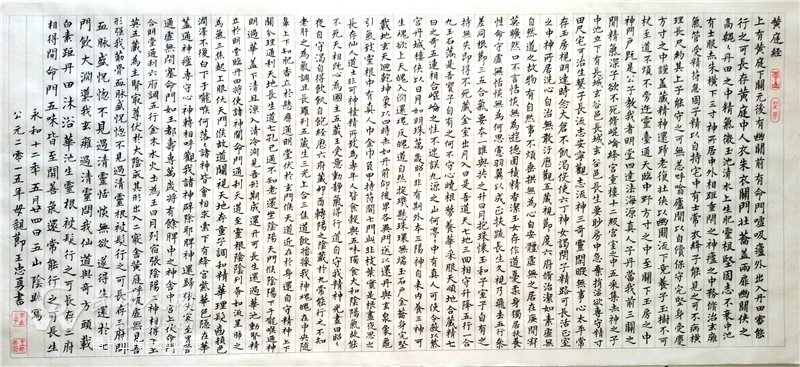 黄庭經
上有黄庭下關元後有幽闕前有命門噓吸廬外出入丹田審能
行之可長存黄庭中人衣朱衣關門壯籥蓋兩扉幽闕俠之
高巍巍丹田之中精氣微玉池清水上生肥靈根堅固志不衰中池
有士服赤朱橫下三寸神所居中外相距重閉之神廬之中務修治玄廱
氣管受精符急固子精以自持宅中有士常衣絳子能見之可不病橫
理長尺約其上子能守之可無恙呼噏廬間以自償保守完堅身受慶
方寸之中謹蓋藏精神還歸老復壯俠以幽闕流下竟養子玉樹不可
杖至道不煩不旁迕靈臺通天臨中野方寸之中至關下玉房之中
神門戶既是公子教我者明堂四達法海源真人子丹當我前三關之
間精氣深子欲不死修崐崘絳宮重樓十二級宮室之中五采集赤神之子
中池立下有長城玄谷邑長生要眇房中急棄捐婬欲專守精寸
田尺宅可治生繫子長流志安寧觀志流神三奇靈閑暇無事心太平常
存玉房視明達時念大倉不飢渴役使六丁神女謁閉子精路可長活正室
之中神所居洗心自治無敢汙歷觀五藏視節度六府修治潔如素虛無
自然道之故物有自然事不煩垂拱無為心自安體虛無之居在廉間寂
莫曠然口不言恬惔無為遊德園積精香潔玉女存作道憂柔身獨居扶養
性命守虛無恬惔無為何思慮羽翼以成正扶疏長生久視乃飛去五行參
差同根節三五合氣要本一誰與共之升日月抱珠懷玉和子室子自有之
持無失即得不死藏金室出月入日是吾道天七地三回相守升降五行一合
九玉石落落是吾寶子自有之何不守心曉根蔕養華采服天順地合藏精七
日之奇五連相合崐崘之性不迷誤九源之山何亭亭中有真人可使令蔽以紫
宮丹城樓俠以日月如明珠萬歲照照非有期外本三陽神自來內養三神可
長生魂欲上天魄入淵還魂反魄道自然旋璣懸珠環無端玉石戶金籥身完堅
載地玄天迴乾坤象以四時赤如丹前仰後卑各異門送以還丹與玄泉象龜
引氣致靈根中有真人巾金巾負甲持符開七門此非枝葉實是根晝夜思之可
長存仙人道士非可神積精所致為專年人皆食穀與五味獨食大和陰陽氣故能
不死天相既心為國主五藏王受意動靜氣得行道自守我精神光晝日昭昭
夜自守渴自得飲飢自飽經歷六府藏卯酉轉陽之陰藏於九常能行之不知
老肝之為氣調且長羅列五藏生三光上合三焦道飲醬漿我神魂魄在中央隨
鼻上下知肥香立於懸廱通明堂伏於玄門候天道近在於身還自守精神上下
關分理通利天地長生道七孔已通不知老還坐陰陽天門候陰陽下于嚨喉通神
明過華蓋下清且涼入清泠淵見吾形期成還丹可長生還過華池動腎精
立於明堂臨丹田將使諸神開命門通利天道至靈根陰陽列布如流星肺之
為氣三焦起上服伏天門候故道闚視天地存童子調和精華理髮齒顏色
潤澤不復白下于嚨喉何落落諸神皆會相求索下有絳宮紫華色隱在華
蓋通神廬專守心神轉相呼觀我諸神辟除耶脾神還歸依大家至於胃管
通虛無閉塞命門如玉都壽專萬歲將有餘脾中之神舍中宮上伏命門
合明堂通利六府調五行金木水火土為王日月列宿張陰陽二神相得下玉
英五藏為主腎最尊伏於大陰成其形出入二竅舍黄庭呼吸虛無見吾
形强我筋骨血脈盛恍惚不見過清靈根被髮行之可長存二府門
血脈盛恍惚不見過清靈恬惔無欲遂得生還於
門飲大淵導我玄廱過清靈問我仙道與奇方頭載
白素距丹田沐浴華池生靈根被髮行之可長存二府
相得開命門五味皆至開善氣還常能行之可長生
永和十二年五月廿四日五山陰縣寫
公元二零二五年母親節王忠勇書